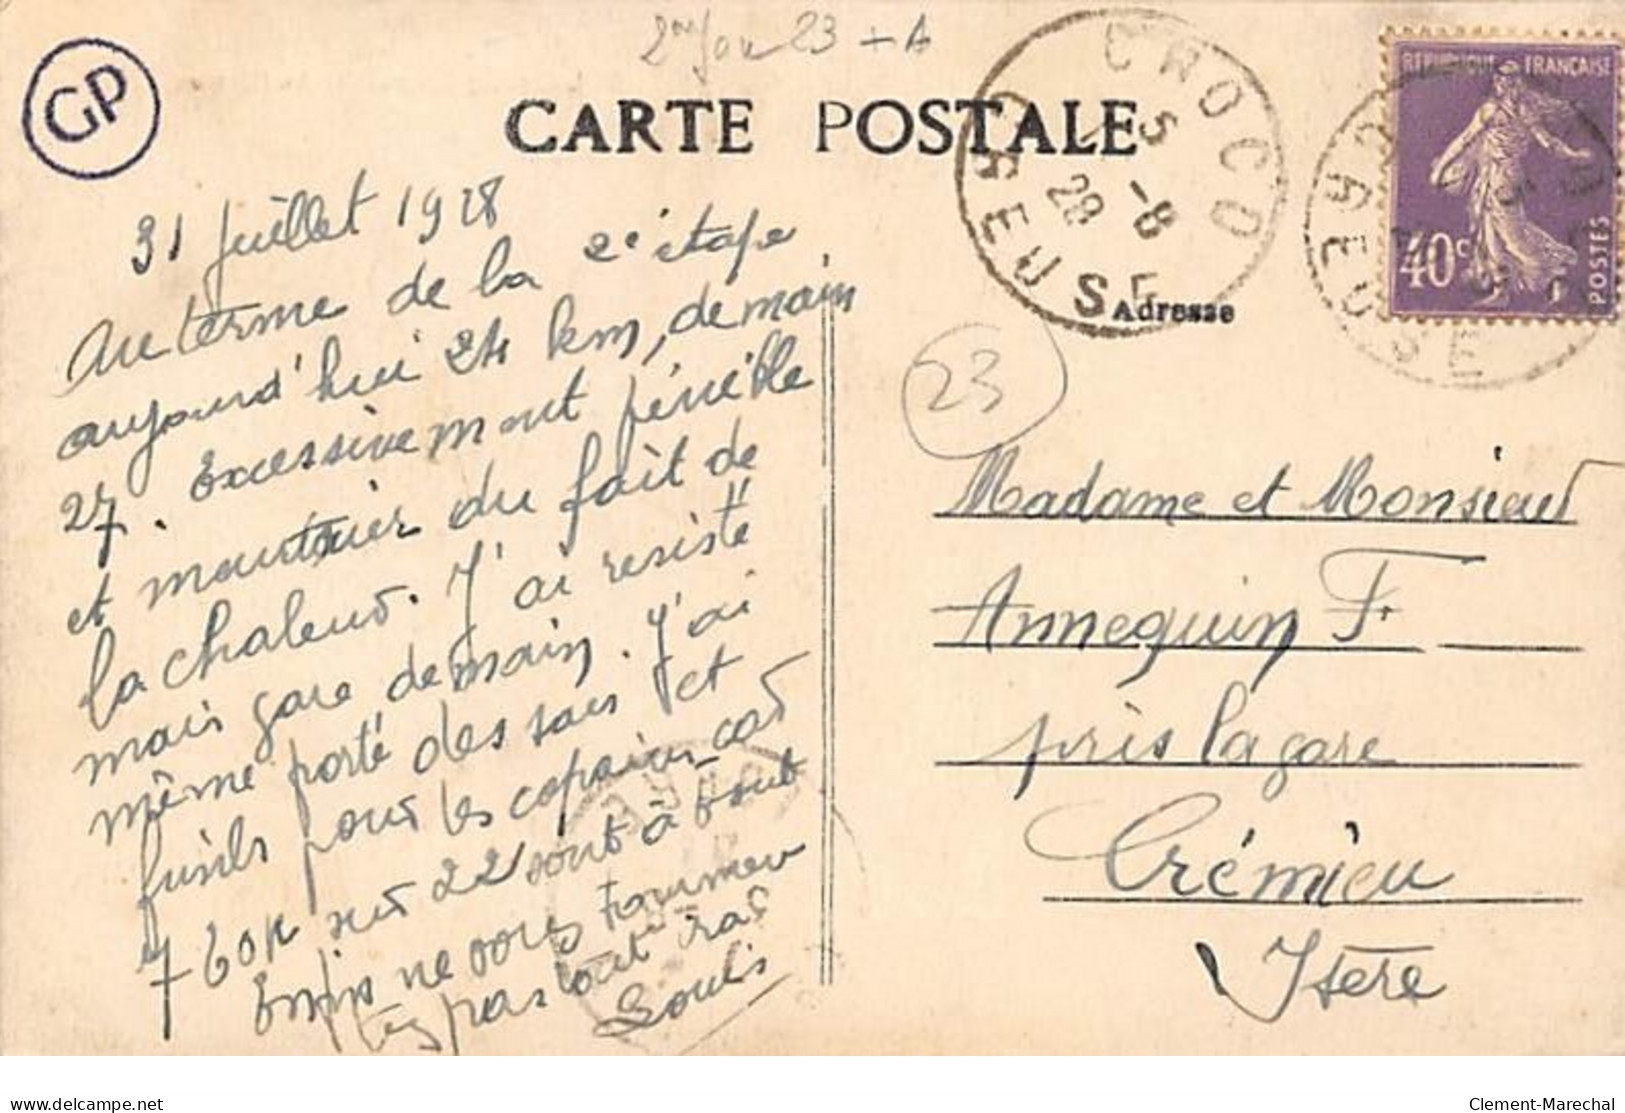 GP
CARTE POSTALE
CROCQ
CREUSE
REPUBLIQUE FRANÇAISE
40c
POSTES
Adresse
23
31 juillet 1928
Au terme de la 2e étape
aujourd'hui 24 km, demain
27. Excessivement pénible
et meurtrier du fait de
la chaleur. J'ai resisté
mais gare demain. J'ai
même porté des sacs et
fusils pour les copains car
7 bon sur 22 sont à bout
Enfin ne vous tourmen
tez pas tout ira
Louis
Madame et Monsieur
Annequin F
près la gare
Crémieu
Isère
www.delcampe.net
Clement-Marechal